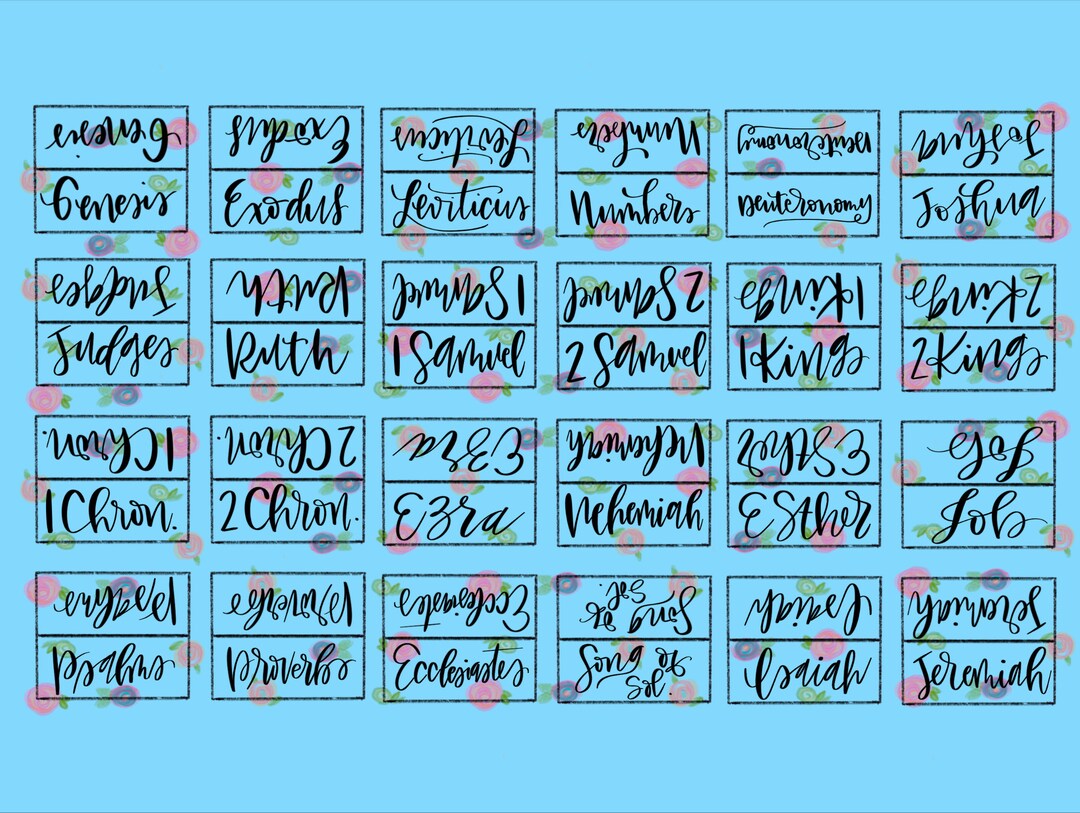 Genesis Exodus Leviticus Numbers Deuteronomy Joshua
Genesis Exodus Leviticus Numbers Deuteronomy Joshua
Judges Ruth 1 Samuel 2 Samuel 1 Kings 2 Kings
Judges Ruth 1 Samuel 2 Samuel 1 Kings 2 Kings
1 Chron. 2 Chron. Ezra Nehemiah Esther Job
1 Chron. 2 Chron. Ezra Nehemiah Esther Job
Psalms Proverbs Ecclesiastes Song of Sol. Isaiah Jeremiah
Psalms Proverbs Ecclesiastes Song of Sol. Isaiah Jeremiah